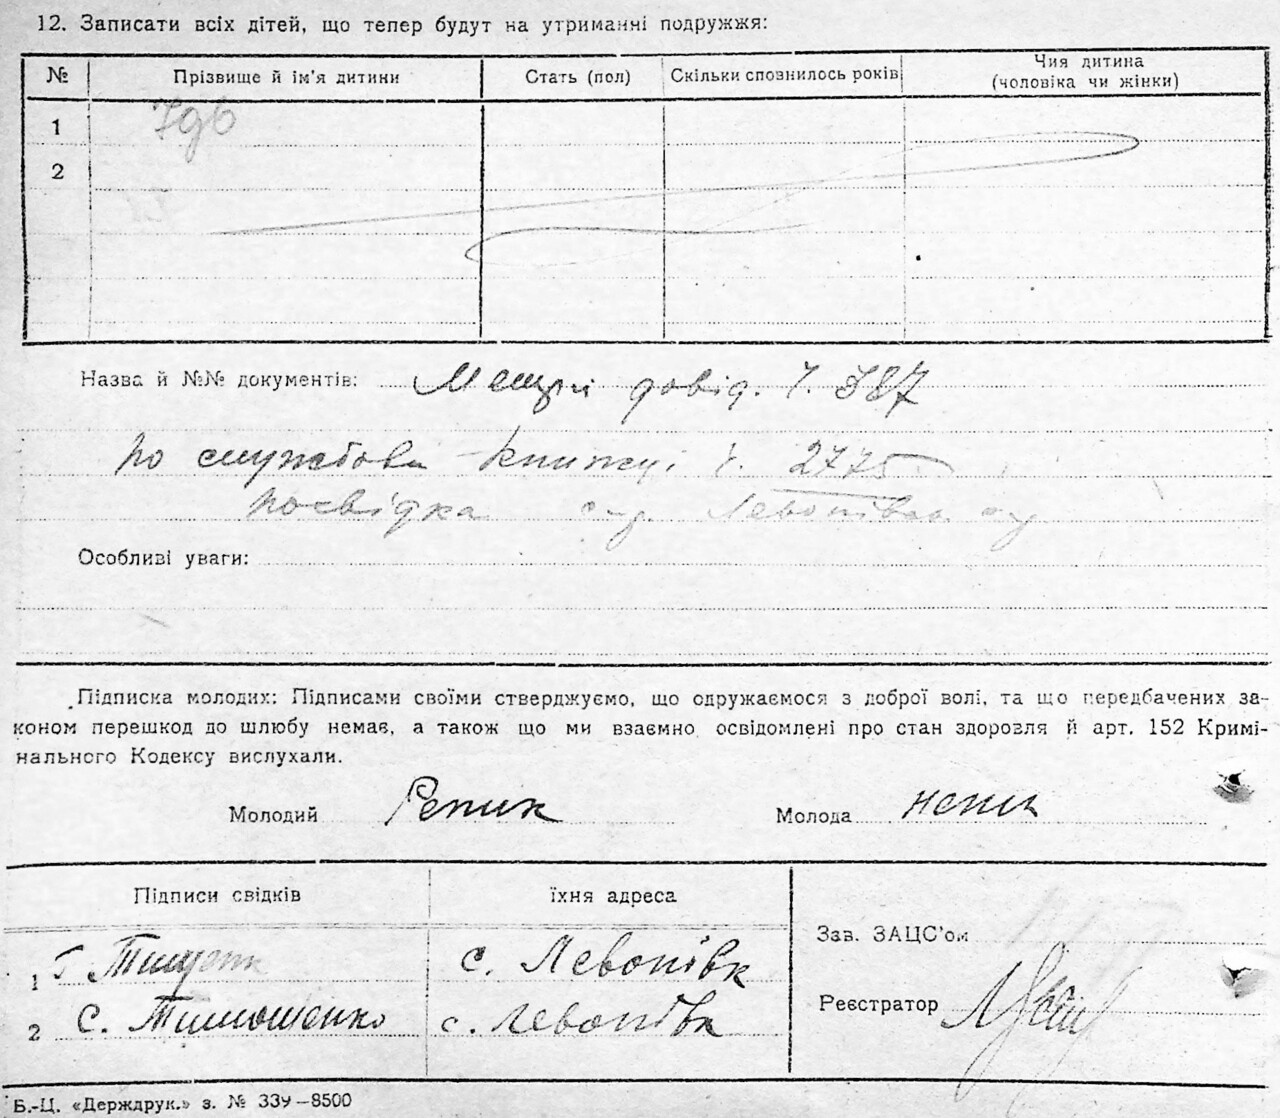 12. Записати всіх дітей, що тепер будут на утриманні подружжя:
№ Прізвище й ім'я дитини Стать (пол) Скільки сповнилось років Чия дитина (чоловіка чи жінки)
1
2
Назва й №№ документів: довід. Ч. 387
по службова книжці ч. 2775
посвідка
Особливі уваги:
Підписка молодих: Підписами своїми стверджуємо, що одружаємося з доброї волі, та що передбачених за-
коном перешкод до шлюбу немає, а також що ми взаємно освідомлені про стан здоровля й арт. 152 Кримі-
нального Кодексу вислухали.
Молодий Репик Молода
Підписи свідків їхня адреса
Зав. ЗАЦС'ом
1 с. Левопівк
Реєстратор
2 С. Тимошенко с. Левопівк
Б.-Ц. «Держдрук.» з. № 339—8500